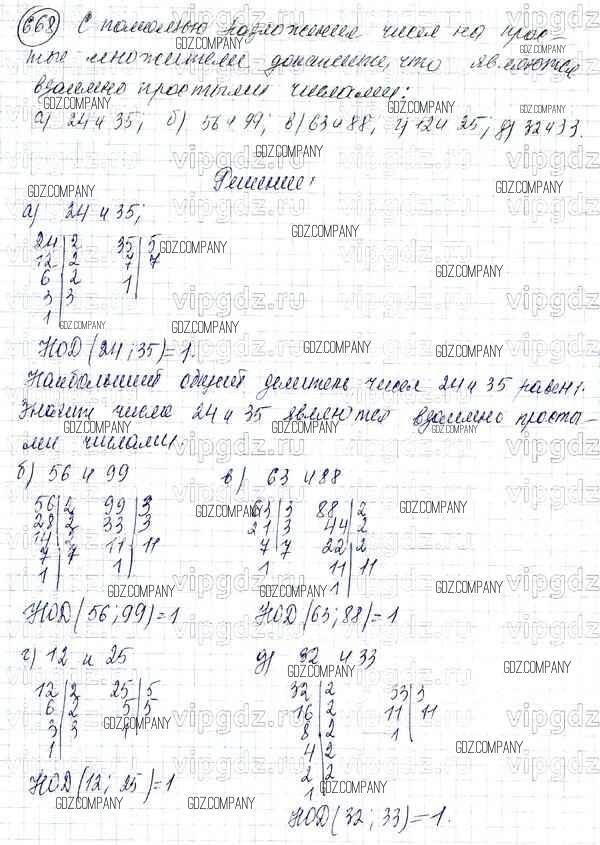 668 С помощью разложения чисел на прос-
тые множители докажите, что являются
взаимно простыми числами:
а) 24 и 35; б) 56 и 99; в) 63 и 88; г) 12 и 25; д) 32 и 33.
Решение:
а) 24 и 35;
24 | 2 35 | 5
12 | 2 7 | 7
6 | 2 1
3 | 3
1
НОД (24; 35) = 1.
Наибольший общий делитель чисел 24 и 35 равен 1.
Значит числа 24 и 35 являются взаимно просты-
ми числами.
б) 56 и 99 в) 63 и 88
56 | 2 99 | 3 63 | 3 88 | 2
28 | 2 33 | 3 21 | 3 44 | 2
14 | 2 11 | 11 7 | 7 22 | 2
7 | 7 1 1 11 | 11
1 1
НОД (56; 99) = 1 НОД (63; 88) = 1
г) 12 и 25 д) 32 и 33
12 | 2 25 | 5 32 | 2 33 | 3
6 | 2 5 | 5 16 | 2 11 | 11
3 | 3 1 8 | 2 1
1 4 | 2
2 | 2
1
НОД (12; 25) = 1
НОД (32; 33) = 1.
vipgdz.ru
GDZ.COMPANY